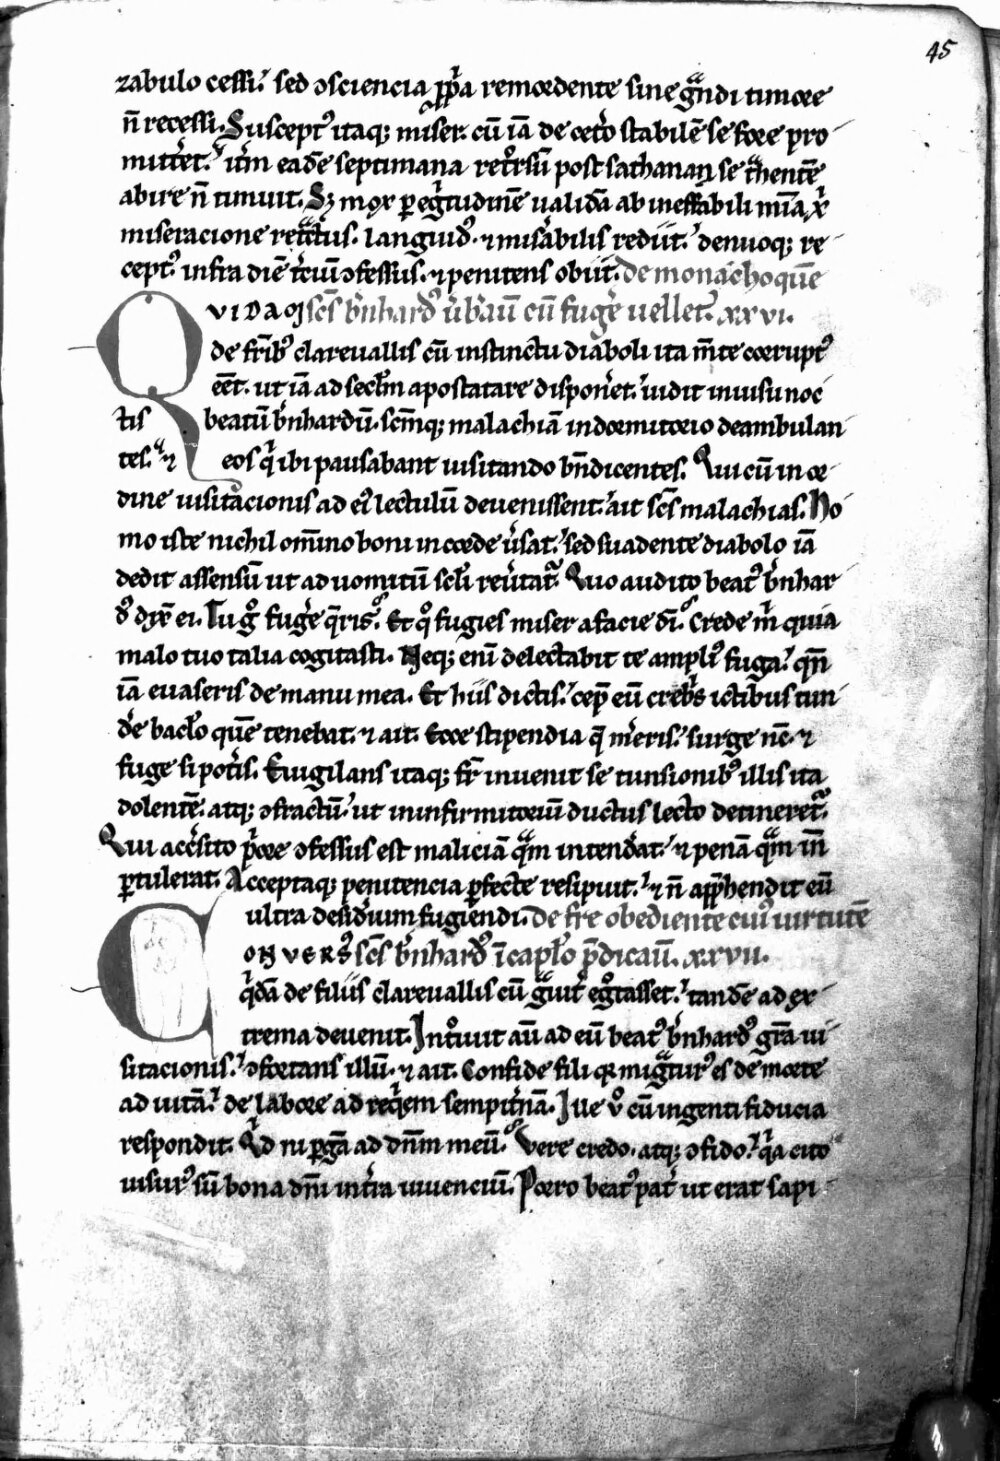 45
zabulo cessi. sed ꝯsciencia ꝓp̃a remordente sine g̃ndi timore
ñ recessi. Suscept᷒ itaqꝫ miser. cũ iã de cet̾o stabilẽ se fore pro
mitt̾et. it̾m eadẽ septimana ret̾rsũ post sathanan se t̾hentẽ
abire ñ timuit. Sꝫ mox ꝑ eg̾tudinẽ ualidã ab ineffabili mĩa xp̃i
miseracione ret̾ctus. languid᷒ ⁊ mis̾abilis rediit. denuoqꝫ re
cept᷒ infra diẽ t̾ciũ ꝯfessus. ⁊ penitens obiit. de monacho quẽ
QVIDAM sc̃s b̾nhard᷒ ũb̾auit cũ fug̾e uellet. xxvi.
de fr̃ib᷒ clareuallis cũ instinctu diaboli ita m̃te corrupt᷒
eẽt. ut iã ad sec̃lm apostatare dispon̾et. uidit in uisu noc
tis beatũ b̾nhardũ. sc̃mqꝫ malachiã in dormitorio deambulan
tes. ⁊ eos q̾ ibi pausabant uisitando bñdicentes. Qui cũ in or
dine uisitacionis ad ei᷒ lectulũ deuenissent. ait sc̃s malachias. Ho
mo iste nichil om̃ino boni in corde u̾sat. sed suadente diabolo iã
dedit assensũ ut ad uomitũ sc̃li reu̾tat̾. Quo audito beat᷒ b̾nhar
d᷒ dix̃ ei. Tu g᷒ fug̾e q̃ris. Et q᷒ fugies miser a facie dĩ. Crede m̾ quia
malo tuo talia cogitasti. Neqꝫ eni delectabit te ampli᷒ fuga. qñ
iã euaseris de manu mea. Et hiis dictis. cep̃ eũ creb̾s ictibus tun
d̾e bac̃lo quẽ tenebat. ⁊ ait. Ecce stipendia q̃ m̾eris. surge nc̃. ⁊
fuge si pot̾is. Euigilans itaqꝫ fr̃ inuenit se tunsionib᷒ illis ita
dolentẽ. atqꝫ ꝯfractũ. ut in infirmitoriũ ductus lecto detineret̾.
Qui acc̾sito p̾ore ꝯfessus est maliciã q̃m intend̾at. ⁊ penã q̃m iñ
ꝑtulerat. Acceptaqꝫ penitencia ꝑfecte resipuit. ⁊ ñ app̃hendit eũ
ultra desid̾ium fugiendi. de fr̃e obediente cui᷒ uirtutẽ
CONVERS᷒ sc̃s b̾nhard᷒ ĩ cap̃lo p̃dicauit. xxvii.
q̾dã de filiis clareuallis cũ g̃uit̾ eg̾tasset. tandẽ ad ex
trema deuenit. Int̾uit aũ ad eũ beat᷒ b̾nhard᷒ gr̃a ui
sitacionis. ꝯfortans illũ. ⁊ ait. Confide fili q̾ mig̃tur᷒ es de morte
ad uitã. de labore ad req̾em sempit̾nã. Ille u᷒ cũ ingenti fiducia
respondit. Q̾d ni ꝑgã ad dñm meũ. Vere credo. atqꝫ ꝯfido. q̾a cito
uisur᷒ sũ bona dñi in t̾ra uiuenciũ. Porro beat᷒ pat̾ ut erat sapi